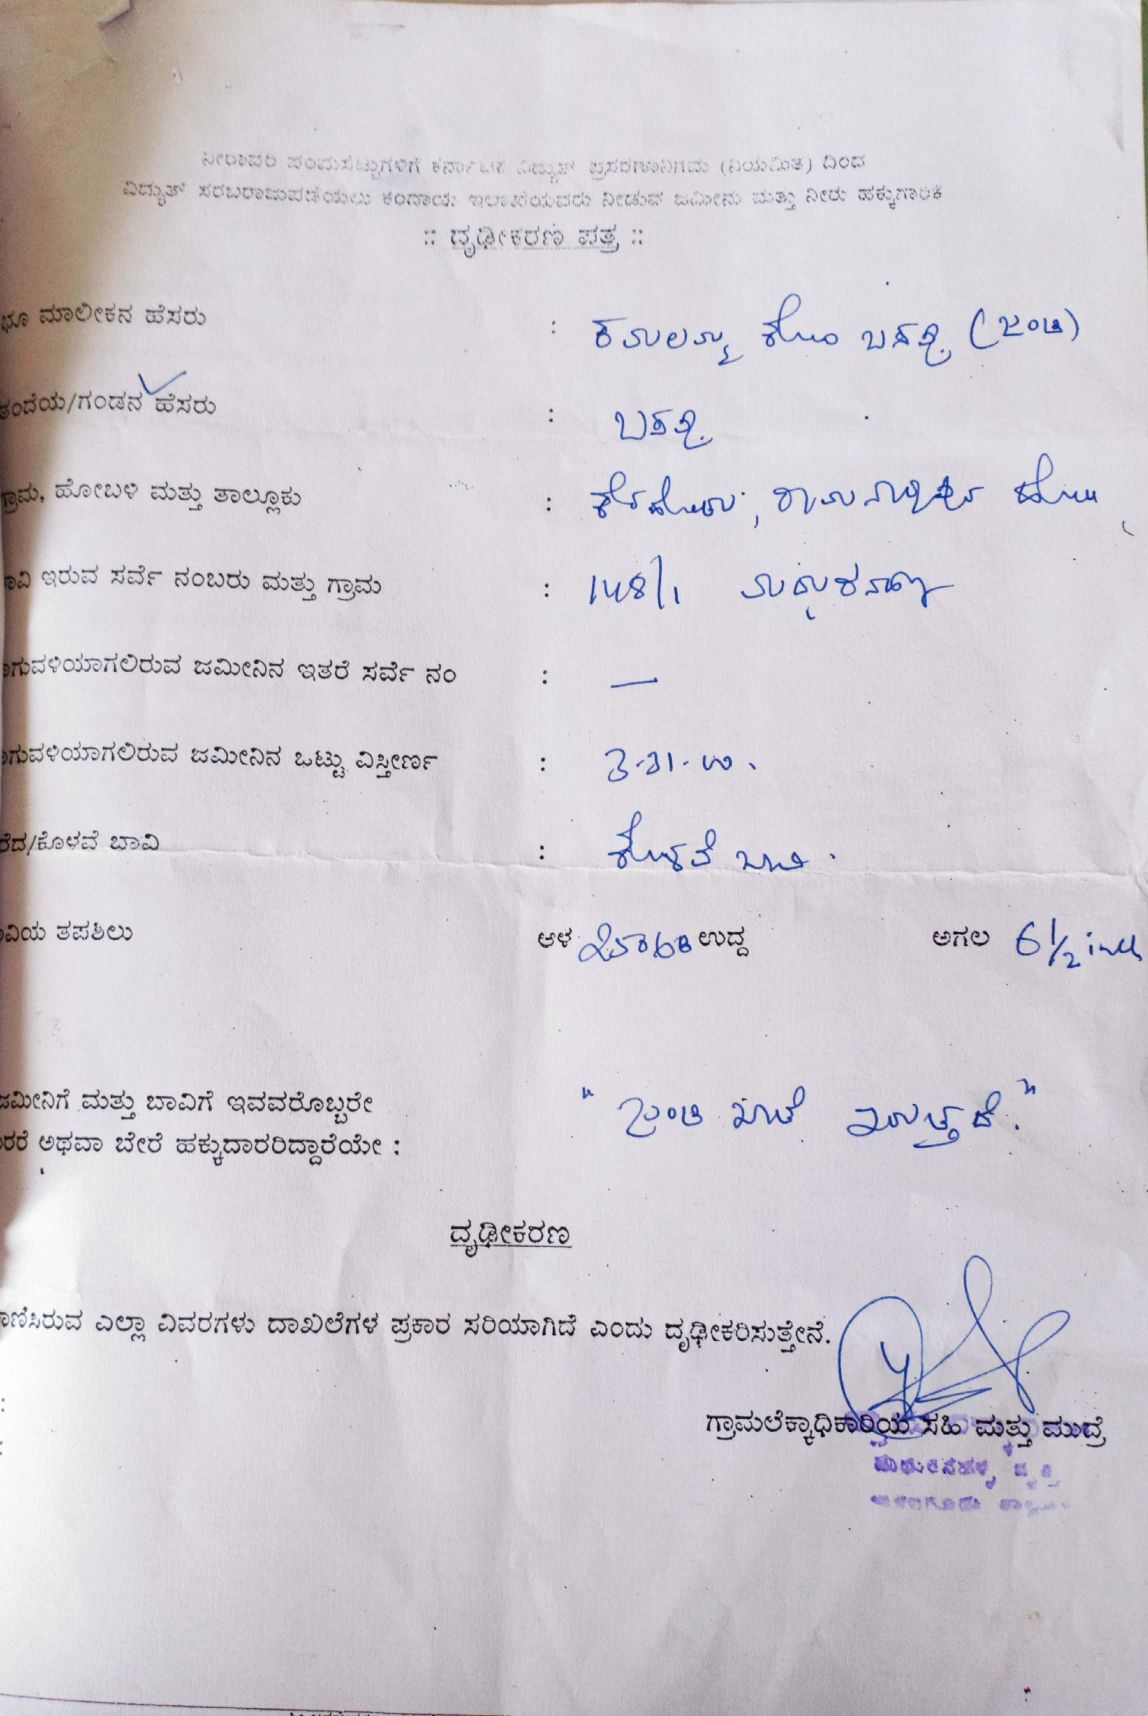 ನೀರಾವರಿ ಪಂಪುಸೆಟ್ಟುಗಳಿಗೆ ಕರ್ನಾಟಕ ವಿದ್ಯುತ್ ಪ್ರಸರಣನಿಗಮ (ನಿಯಮಿತ) ದಿಂದ
ವಿದ್ಯುತ್ ಸರಬರಾಜುಪಡೆಯಲು ಕಂದಾಯ ಇಲಾಖೆಯವರು ನೀಡುವ ಜಮೀನು ಮತ್ತು ನೀರು ಹಕ್ಕುಗಾರಿಕೆ
:: ದೃಢೀಕರಣ ಪತ್ರ ::
ಭೂ ಮಾಲೀಕನ ಹೆಸರು : ಕಮಲಮ್ಮ ಕೋಂ ಬಸಪ್ಪ (ಜಂಟಿ)
ತಂದೆಯ/ಗಂಡನ ಹೆಸರು : ಬಸಪ್ಪ
ಗ್ರಾಮ, ಹೋಬಳಿ ಮತ್ತು ತಾಲ್ಲೂಕು :
ಾವಿ ಇರುವ ಸರ್ವೆ ನಂಬರು ಮತ್ತು ಗ್ರಾಮ : 148/1
ಾಗುವಳಿಯಾಗಲಿರುವ ಜಮೀನಿನ ಇತರೆ ಸರ್ವೆ ನಂ : —
ಾಗುವಳಿಯಾಗಲಿರುವ ಜಮೀನಿನ ಒಟ್ಟು ವಿಸ್ತೀರ್ಣ :
ರೆದ/ಕೊಳವೆ ಬಾವಿ : ಕೊಳವೆ ಬಾವಿ .
ಾವಿಯ ತಪಶಿಲು ಆಳ ಉದ್ದ ಅಗಲ 6 1/2 inch
ಜಮೀನಿಗೆ ಮತ್ತು ಬಾವಿಗೆ ಇವವರೊಬ್ಬರೇ " ಜಂಟಿ ಖಾತೆ ಇರುತ್ತದೆ. "
ಾರರೆ ಅಥವಾ ಬೇರೆ ಹಕ್ಕುದಾರರಿದ್ದಾರೆಯೇ :
ದೃಢೀಕರಣ
ಾಣಿಸಿರುವ ಎಲ್ಲಾ ವಿವರಗಳು ದಾಖಲೆಗಳ ಪ್ರಕಾರ ಸರಿಯಾಗಿದೆ ಎಂದು ದೃಢೀಕರಿಸುತ್ತೇನೆ.
ಗ್ರಾಮಲೆಕ್ಕಾಧಿಕಾರಿಯ ಸಹಿ ಮತ್ತು ಮುದ್ರೆ